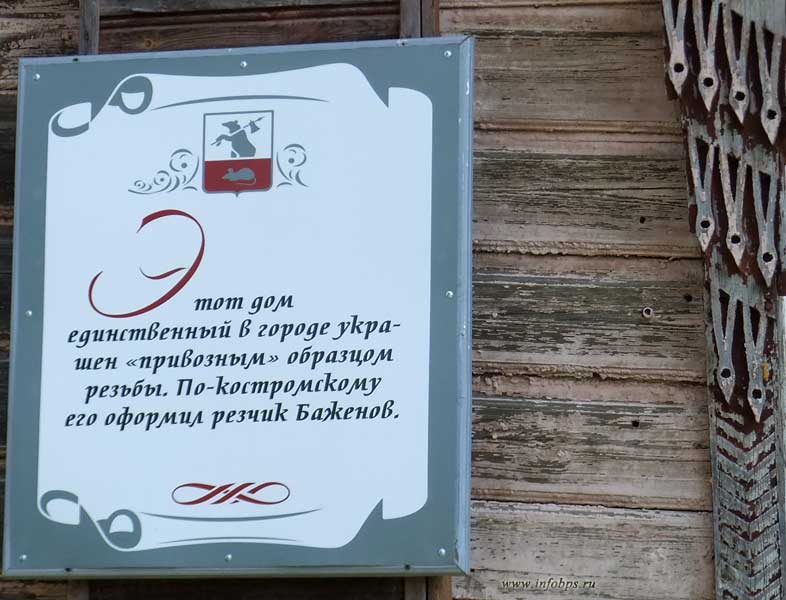 Этот дом
единственный в городе укра-
шен «привозным» образцом
резьбы. По-костромскому
его оформил резчик Баженов.
www.infobps.ru